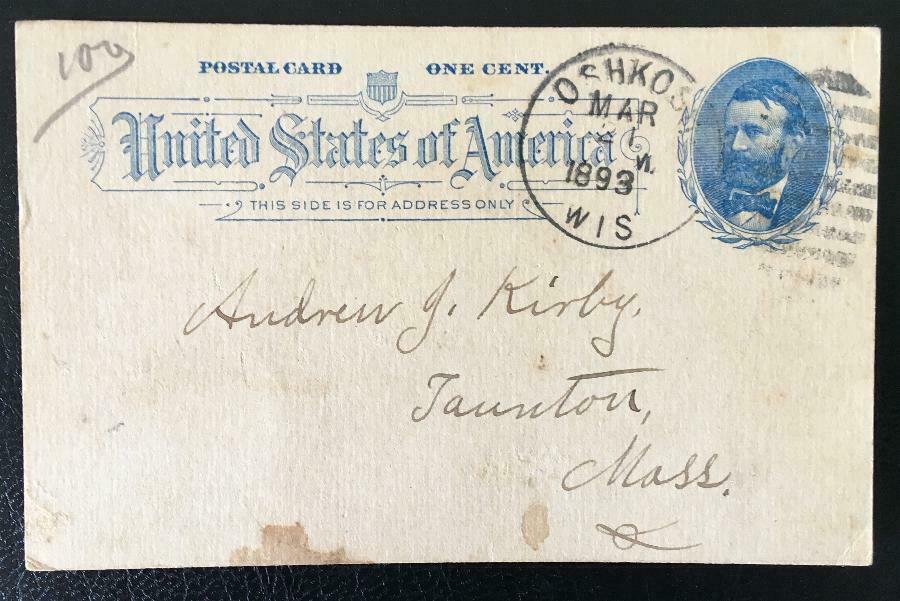 100
POSTAL CARD ONE CENT.
United States of America
THIS SIDE IS FOR ADDRESS ONLY
OSHKOS
MAR
1893
WIS
Andrew J. Kirby.
Taunton,
Mass.